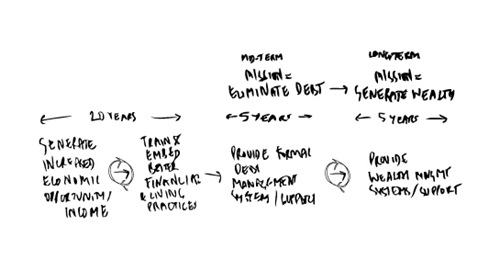 MID-TERM
MISSION =
ELIMINATE DEBT
LONG TERM
MISSION =
GENERATE WEALTH
20 YEARS
5 YEARS
5 YEARS
GENERATE
INCREASED
ECONOMIC
OPPORTUNITY/
INCOME
TRAIN &
EMBED
BETTER
FINANCIAL
& LIVING
PRACTICES
PROVIDE FORMAL
DEBT
MANAGEMENT
SYSTEM/SUPPORT
PROVIDE
WEALTH MNGMT
SYSTEMS/SUPPORT